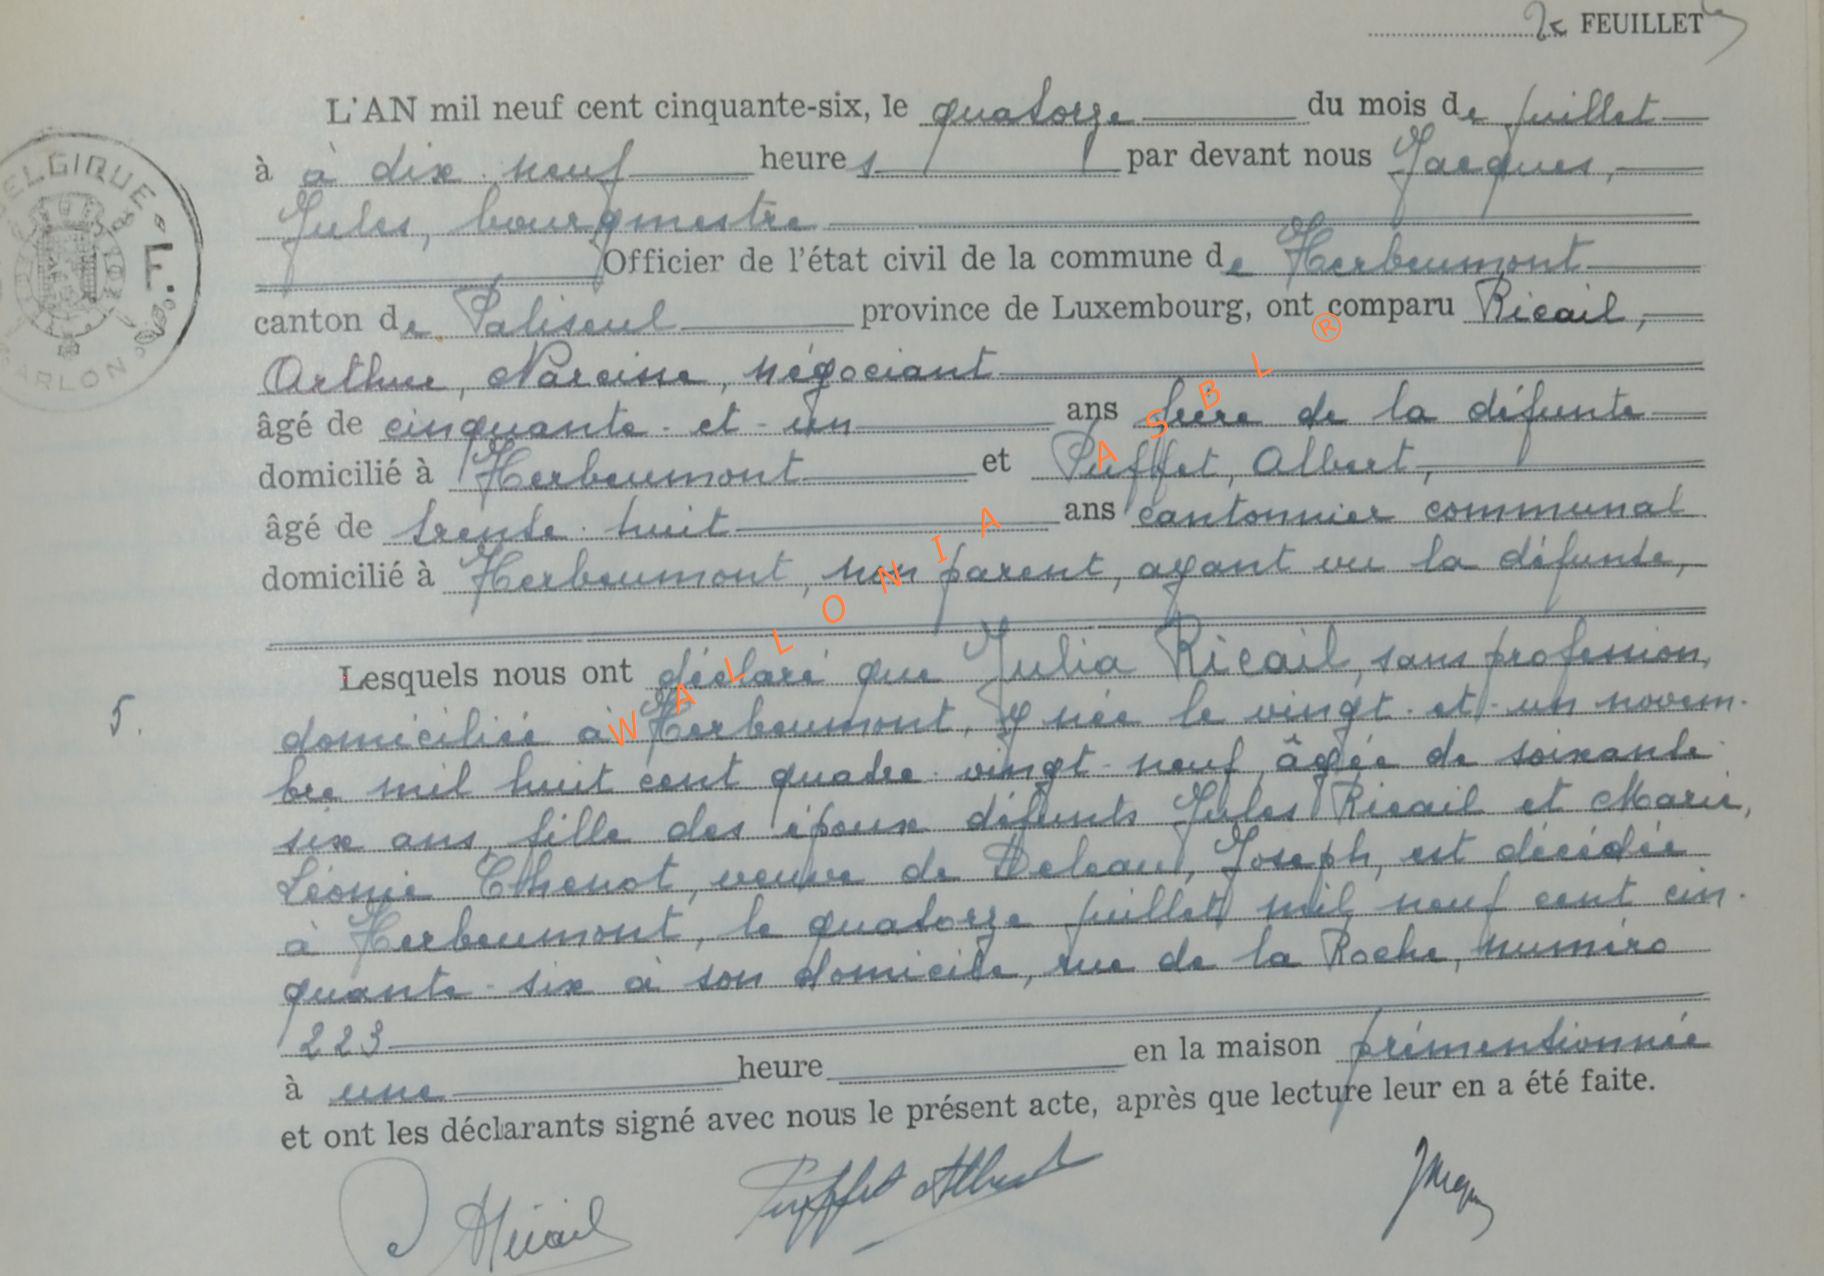 2e FEUILLET
L'AN mil neuf cent cinquante-six, le quatorze du mois de juillet
à à dix-neuf heures par devant nous Jacques,
Jules, bourgmestre
Officier de l'état civil de la commune de Herbeumont
canton de Paliseul province de Luxembourg, ont comparu Ricail,
Arthur, Narcisse, négociant
âgé de cinquante-et-un ans frère de la défunte
domicilié à Herbeumont et Puffet, Albert,
âgé de trente-huit ans cantonnier communal
domicilié à Herbeumont, non parent, ayant vu la défunte,
Lesquels nous ont déclaré que Julia Ricail, sans profession,
5. domiciliée à Herbeumont, y née le vingt-et-un novem-
bre mil huit cent quatre-vingt-neuf, âgée de soixante-
six ans, fille des époux défunts Jules Ricail et Marie,
Léonie Thenot, veuve de Deleau, Joseph, est décédée
à Herbeumont, le quatorze juillet mil neuf cent cin-
quante-six à son domicile, rue de la Roche, numéro
223
à une heure en la maison prémentionnée
et ont les déclarants signé avec nous le présent acte, après que lecture leur en a été faite.
ARicail Puffet Albert
BELGIQUE
ARLON
WALLONIA ASBL ®